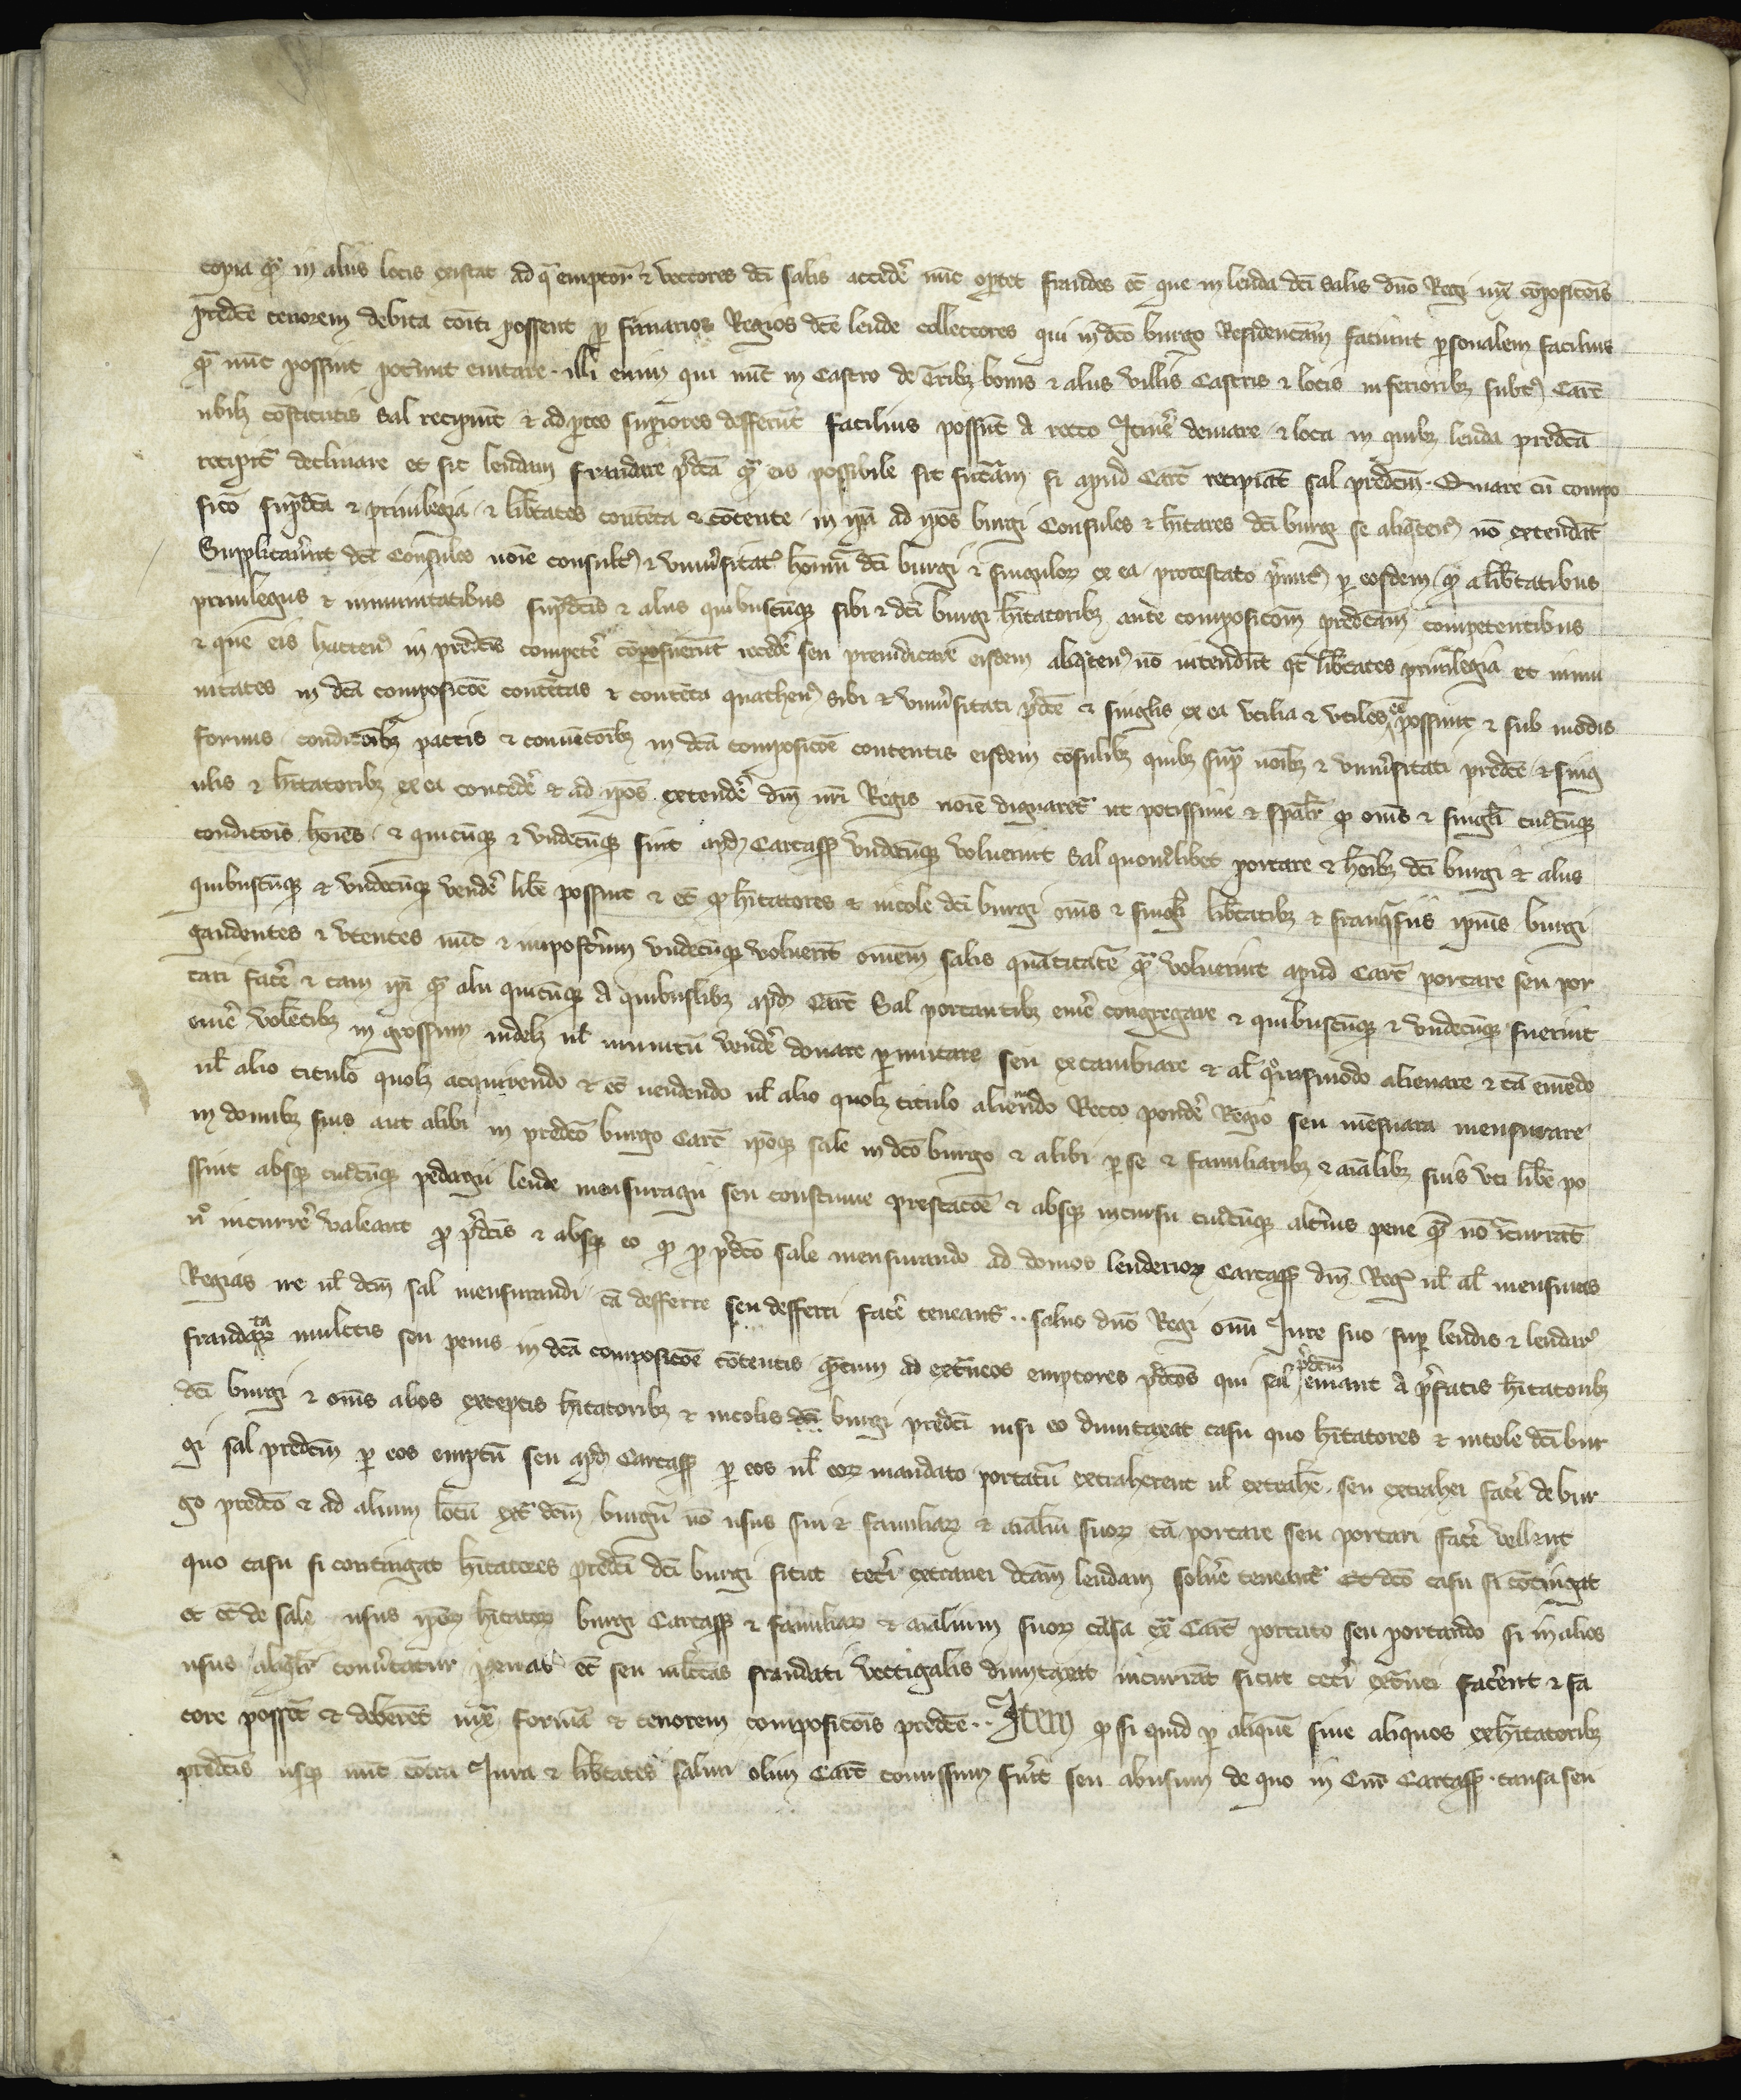 copia qͣ in aliis locis existat ad qͣ emptor̄ ⁊ vectores dc̄i salis accedẽ nūc oportet fraudes ec̄ que in lenda dc̄i salis dn̄o Regi iuxͣ cōposicōis
predc̄e tenorem debita cōiti possent per firmarios Regios dc̄e lende collectores qui in dc̄o burgo Residenciam faciunt personalem facilius
qͣ nūc possint poterunt euitare. illi enim qui nūc in Castro de Tribꝫ bonis ⁊ aliis villis Castris ⁊ locis inferioribꝫ subtꝰ Carc̄
ubilꝫ cōstitutis sal recipiūt ⁊ ad partes superiores defferūt facilius possūt a recto Itinẽ deuiare ⁊ loca in quibꝫ lenda predc̄a
recipitur declinare et sic lendam fraudare p̄dc̄a qͣ eis possibile sit si apud Carc̄ recipiāt sal predc̄m. Quare cū compo
sicō supͣdc̄a ⁊ priuilegia ⁊ libtates contēta ⁊ cōtente in ip̄a ad ip̄os burgi Consules ⁊ hītares dc̄i burgi se aliqͣtenꝰ nō extendāt
Supplicauerūt dc̄i Consules noīe consulatꝰ ⁊ vniuersitatꝭ hoīnū dc̄i burgi ⁊ singulorꝫ ex ea protestato p̄mitꝰ per eosdem ꝙ a libtatibus
priuilegiis ⁊ immunitatibus supͣdc̄is ⁊ aliis quibuscūqꝫ sibi ⁊ dc̄i burgi hītatoribꝫ ante composicōm predc̄am competentibus
⁊ que eis hactenꝰ in predc̄is competẽ cōposuerunt recedẽ seu preiudicare eisdem aliqͣtenꝰ nō intendūt qͭ libtates priuilegia et immu
nitates in dc̄a composicōe contētas ⁊ contēta quathenꝰ sibi ⁊ vniuersitati p̄dc̄e ⁊ singlis ex ea vtilia ⁊ vtiles ēe possint ⁊ sub modis
formis condicōibꝫ pactis ⁊ conuētōibꝫ in dc̄a composicōe contentis eisdem cōsulibꝫ quibꝫ supͣ noībꝫ ⁊ vniuersitati predc̄e ⁊ sing
ulis ⁊ hītatoribꝫ ex ea concedẽ ⁊ ad ip̄os extendẽ dn̄i nr̄i Regis noīe dignaretur ut potissime ⁊ sp̄alr̄ ꝙ om̄s ⁊ singl̄i cuiuscūqꝫ
condicōis hoīes ⁊ quicūqꝫ ⁊ vndecūqꝫ sint apud Carcass̄ vndecūqꝫ voluerint sal quomōlibet portare ⁊ hoībꝫ dc̄i burgi ⁊ aliis
quibuscūqꝫ ⁊ vndecūqꝫ vendẽ libē possint ⁊ ec̄ ꝙ hītatores ⁊ incole dc̄i burgi om̄s ⁊ singl̄i libtatibꝫ ⁊ franqͣsiis ip̄ius burgi
gaudentes ⁊ vtentes nūc ⁊ imposterum vndecūqꝫ voluerit omnem salis quātitatē qͣ voluerint apud Carc̄ portare seu por
tari facẽ ⁊ tam ip̄i qͣ alii quicūqꝫ a quibuslibꝫ apud Carc̄ Sal portantibꝫ emẽ congregare ⁊ quibuscūqꝫ ⁊ vndecūqꝫ fuerint
emẽ volētibꝫ in grossum indelꝫ ul̄ minutū vendẽ donare permutare seu excambiare ⁊ al̄ qͦuismodo alienare ⁊ tā emēdo
ul̄ alio titulo quolꝫ acquirendo ⁊ ec̄ uendendo ul̄ alio quolꝫ titulo alienando Recto pondẽ Regio seu mēsura mensurare
in domibꝫ suis aut alibi in predc̄o burgo Carc̄ ip̄oqꝫ sale in dc̄o burgo ⁊ alibi per se ⁊ familiaribꝫ ⁊ aīalibꝫ suis vti libē po
ssint absqꝫ cuiuscūqꝫ pedagii lende mensuragii seu coustume prestacōe ⁊ absqꝫ incursu cuiuscūqꝫ alterius pene qͣ nō īcurrāt
nͦ incurrẽ valeant ꝓ p̄dc̄is ⁊ absqꝫ eo ꝙ ꝓ p̄dc̄o sale mensurando ad domos lenderiorꝫ Carcass̄ dn̄i Regꝭ ul̄ al̄ mensuras
Regias ire ul̄ dc̄m sal mensurandi cā defferre seu defferri facẽ teneantur. saluo dn̄o Regi om̄i Iure suo super lendis ⁊ lendarꝭ
fraudatarꝫ mulctis seu penis in dc̄a composicōe cōtentis quātum ad extͣneos emptores p̄dc̄os qui sal p̄dc̄m emant a p̄fatis hītatoribꝫ
dc̄i burgi ⁊ om̄s alios exceptis hītatoribꝫ ⁊ incolis dc̄i burgi predc̄i nisi eo dumtaxat casu quo hītatores ⁊ incole dc̄i bur
gi sal predc̄m per eos emptū seu apud Carcass̄ per eos ul̄ eorꝫ mandato portatū extraherent ul̄ extrahẽ seu extrahi facẽ de bur
go predc̄o ⁊ ad alium locū extͣ dc̄m burgū nō usus sui ⁊ familiarꝫ ⁊ aīaliū suorꝫ cā portare seu portari facẽ vellent
quo casu si contingat hītatores predc̄i dc̄i burgi sicut cetẽi extranei dc̄am lendam soluẽ teneantur Et dc̄o casu si cōtingat
et ec̄ de sale usus ip̄orꝫ hītatorꝫ burgi Carcass̄ ⁊ familiarꝫ ⁊ aīalium suorꝫ causa extͣ Carc̄ portato seu portando si in alios
usus aliqͣlr̄ conuertatur penas ec̄ seu mlctas fraudati vectigalis dumtaxat incurrāt sicut cetẽi extͣnei facerent ⁊ fa
cere possēt ⁊ deberēt iuxͣ formā ⁊ tenorem composicōis predc̄e. Item ꝙ si quid per aliquē siue aliquos ex hītatoribꝫ
predc̄is usqꝫ nūc cōtra Iura ⁊ libtates salini olim Carc̄ comissum fuerit seu abusum de quo in Cur̄ Carcass̄ causa seu